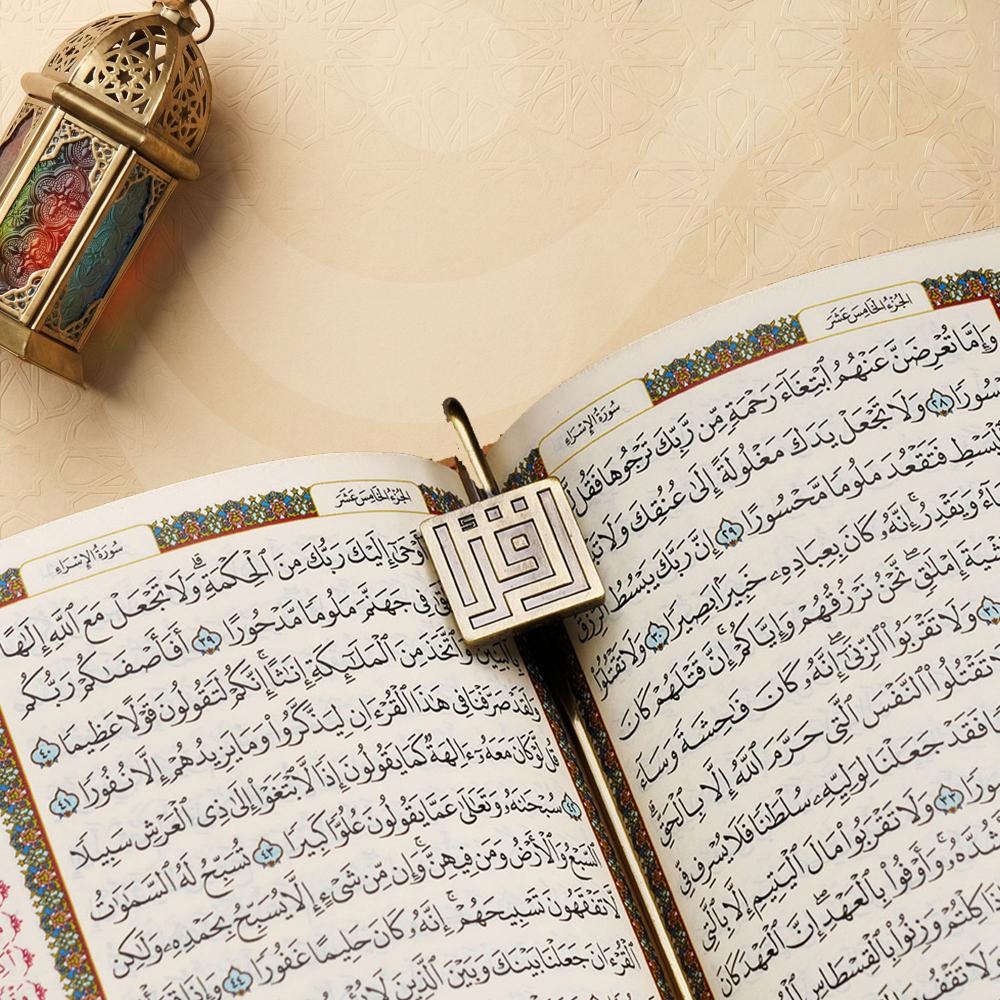 الجُزْءُ الخَامِسَ عَشَرَ
سُورَةُ الإِسْرَاءِ
وَإِمَّا تُعْرِضَنَّ عَنْهُمُ ٱبْتِغَآءَ رَحْمَةٍ مِّن رَّبِّكَ تَرْجُوهَا فَقُل
سُورًا ٢٨ وَلَا تَجْعَلْ يَدَكَ مَغْلُولَةً إِلَىٰ عُنُقِكَ وَلَا
ٱلْبَسْطِ فَتَقْعُدَ مَلُومًا مَّحْسُورًا ٢٩ إِنَّ رَبَّكَ يَبْسُطُ ٱلرِّزْقَ
وَيَقْدِرُ إِنَّهُۥ كَانَ بِعِبَادِهِۦ خَبِيرًۢا بَصِيرًا ٣٠ وَلَا تَقْتُلُوٓا۟
إِمْلَٰقٍ نَّحْنُ نَرْزُقُهُمْ وَإِيَّاكُمْ إِنَّ قَتْلَهُمْ كَانَ
٣١ وَلَا تَقْرَبُوا۟ ٱلزِّنَىٰٓ إِنَّهُۥ كَانَ فَٰحِشَةً وَسَآءَ
لَا تَقْتُلُوا۟ ٱلنَّفْسَ ٱلَّتِى حَرَّمَ ٱللَّهُ إِلَّا بِٱلْحَقِّ
فَقَدْ جَعَلْنَا لِوَلِيِّهِۦ سُلْطَٰنًا فَلَا يُسْرِف فِّى
٣٣ وَلَا تَقْرَبُوا۟ مَالَ ٱلْيَتِيمِ إِلَّا بِٱلَّتِى
وَأَوْفُوا۟ بِٱلْعَهْدِ إِنَّ ٱلْعَهْدَ كَانَ
كِلْتُمْ وَزِنُوا۟ بِٱلْقِسْطَاسِ
وَلَا تَقْفُ
اقرأ
الجُزْءُ الخَامِسَ عَشَرَ
سُورَةُ الإِسْرَاءِ
أَوْحَىٰٓ إِلَيْكَ رَبُّكَ مِنَ ٱلْحِكْمَةِ وَلَا تَجْعَلْ مَعَ ٱللَّهِ إِلَٰهًا
فِى جَهَنَّمَ مَلُومًا مَّدْحُورًا ٣٩ أَفَأَصْفَىٰكُمْ رَبُّكُم
بِٱلْبَنِينَ وَٱتَّخَذَ مِنَ ٱلْمَلَٰٓئِكَةِ إِنَٰثًا إِنَّكُمْ لَتَقُولُونَ قَوْلًا عَظِيمًا ٤٠
وَلَقَدْ صَرَّفْنَا فِى هَٰذَا ٱلْقُرْءَانِ لِيَذَّكَّرُوا۟ وَمَا يَزِيدُهُمْ إِلَّا نُفُورًا ٤١
قُل لَّوْ كَانَ مَعَهُۥٓ ءَالِهَةٌ كَمَا يَقُولُونَ إِذًا لَّٱبْتَغَوْا۟ إِلَىٰ ذِى ٱلْعَرْشِ سَبِيلًا
٤٢ سُبْحَٰنَهُۥ وَتَعَٰلَىٰ عَمَّا يَقُولُونَ عُلُوًّا كَبِيرًا ٤٣ تُسَبِّحُ لَهُ ٱلسَّمَٰوَٰتُ
ٱلسَّبْعُ وَٱلْأَرْضُ وَمَن فِيهِنَّ وَإِن مِّن شَىْءٍ إِلَّا يُسَبِّحُ بِحَمْدِهِۦ وَلَٰكِن
لَّا تَفْقَهُونَ تَسْبِيحَهُمْ إِنَّهُۥ كَانَ حَلِيمًا غَفُورًا ٤٤ وَإِذَا قَرَأْتَ
ٱلْقُرْءَانَ جَعَلْنَا بَيْنَكَ وَبَيْنَ ٱلَّذِينَ